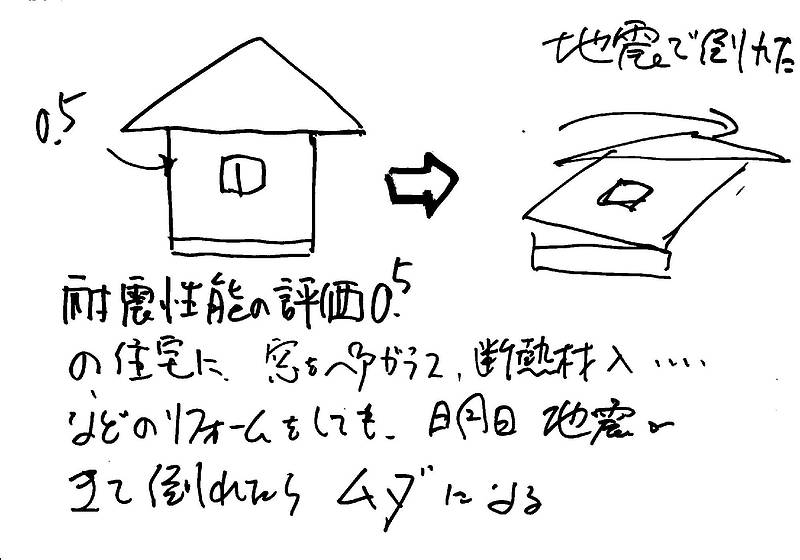 地震で倒れた
0.5
耐震性能の評価0.5
の住宅に、窓をペアガラス、断熱材入‥‥
などのリフォームをしても、明日 地震が
きて倒れたら ムダになる